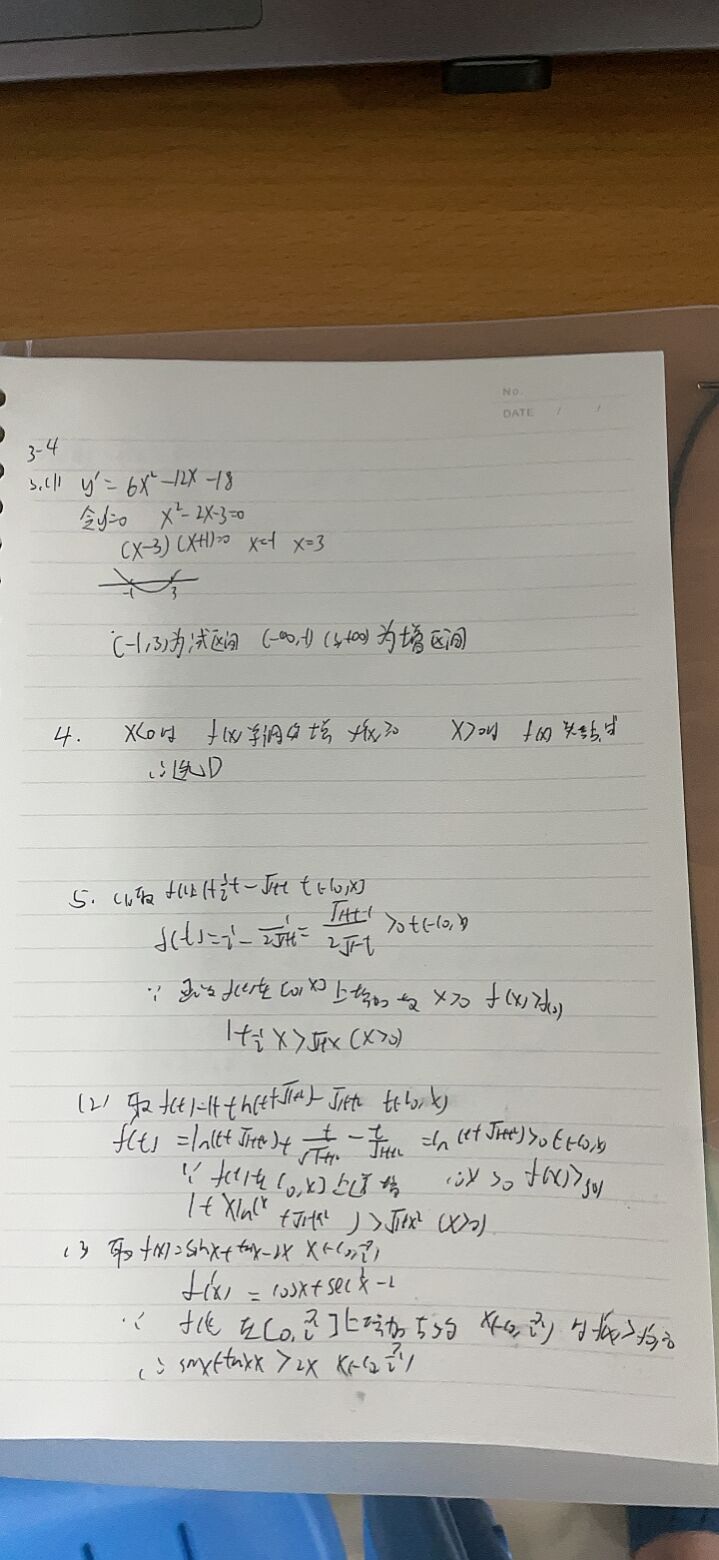 No.
DATE / /
3-4
3.(1) y′ = 6x² -12x -18
令y′=0 x²-2x-3=0
(x-3)(x+1)=0 x=-1 x=3
-1 3
(-1,3)为减区间 (-∞,-1) (3,+∞) 为增区间
4. x<0时 f(x)单调 增 f′(x)≥0 x>0时 f(x)
∴选D
5. (1)取 f(t)=1+½t-√1+t t∈[0,x]
f′(t)=½ - 1/2√1+t = √1+t-1/2√1+t >0 t∈(0,x)
∵ f(t)在[0,x]上 x>0 f(x)>f(0)
1+½x>√1+x (x>0)
(2) 取 f(t)=1+t ln(t+√1+t²)-√1+t² t∈[0,x]
f′(t) =ln(t+√1+t²)+ t/√1+t² - t/√1+t² =ln(t+√1+t²)>0 t∈(0,x)
∵ f(t)在[0,x]上 增 ∴x>0 f(x)>f(0)
1+xln(x+√1+x²)>√1+x² (x>0)
(3 取 f(x)=sinx+tanx-2x x∈(0,π/2)
f′(x) = cosx+sec²x-2
∵ 在[0,π/2]上 x∈(0,π/2) 时f(x)>f(0)=0
∴ sinx+tanx>2x x∈(0,π/2)